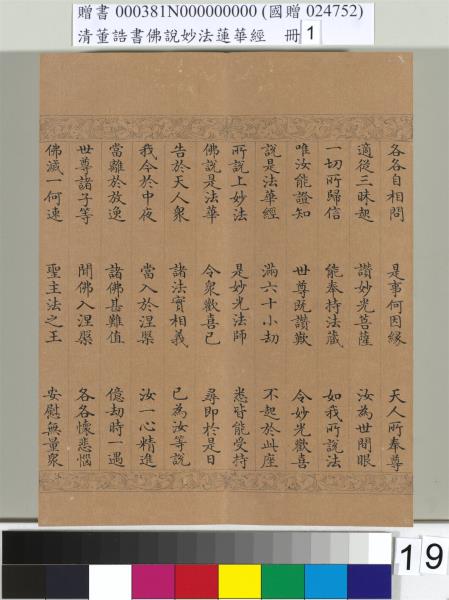 贈書 000381N000000000 (國贈 024752)
清董誥書佛說妙法蓮華經 冊 1
各各自相問 是事何因緣 天人所奉尊
適從三昧起 讚妙光菩薩 汝為世間眼
一切所歸信 能奉持法藏 如我所說法
唯汝能證知 世尊既讚歎 令妙光歡喜
說是法華經 滿六十小劫 不起於此座
所說上妙法 是妙光法師 悉皆能受持
佛說是法華 令衆歡喜已 尋即於是日
告於天人衆 諸法實相義 已為汝等說
我今於中夜 當入於涅槃 汝一心精進
當離於放逸 諸佛甚難值 億劫時一遇
世尊諸子等 聞佛入涅槃 各各懷悲惱
佛滅一何速 聖主法之王 安慰無量衆
19